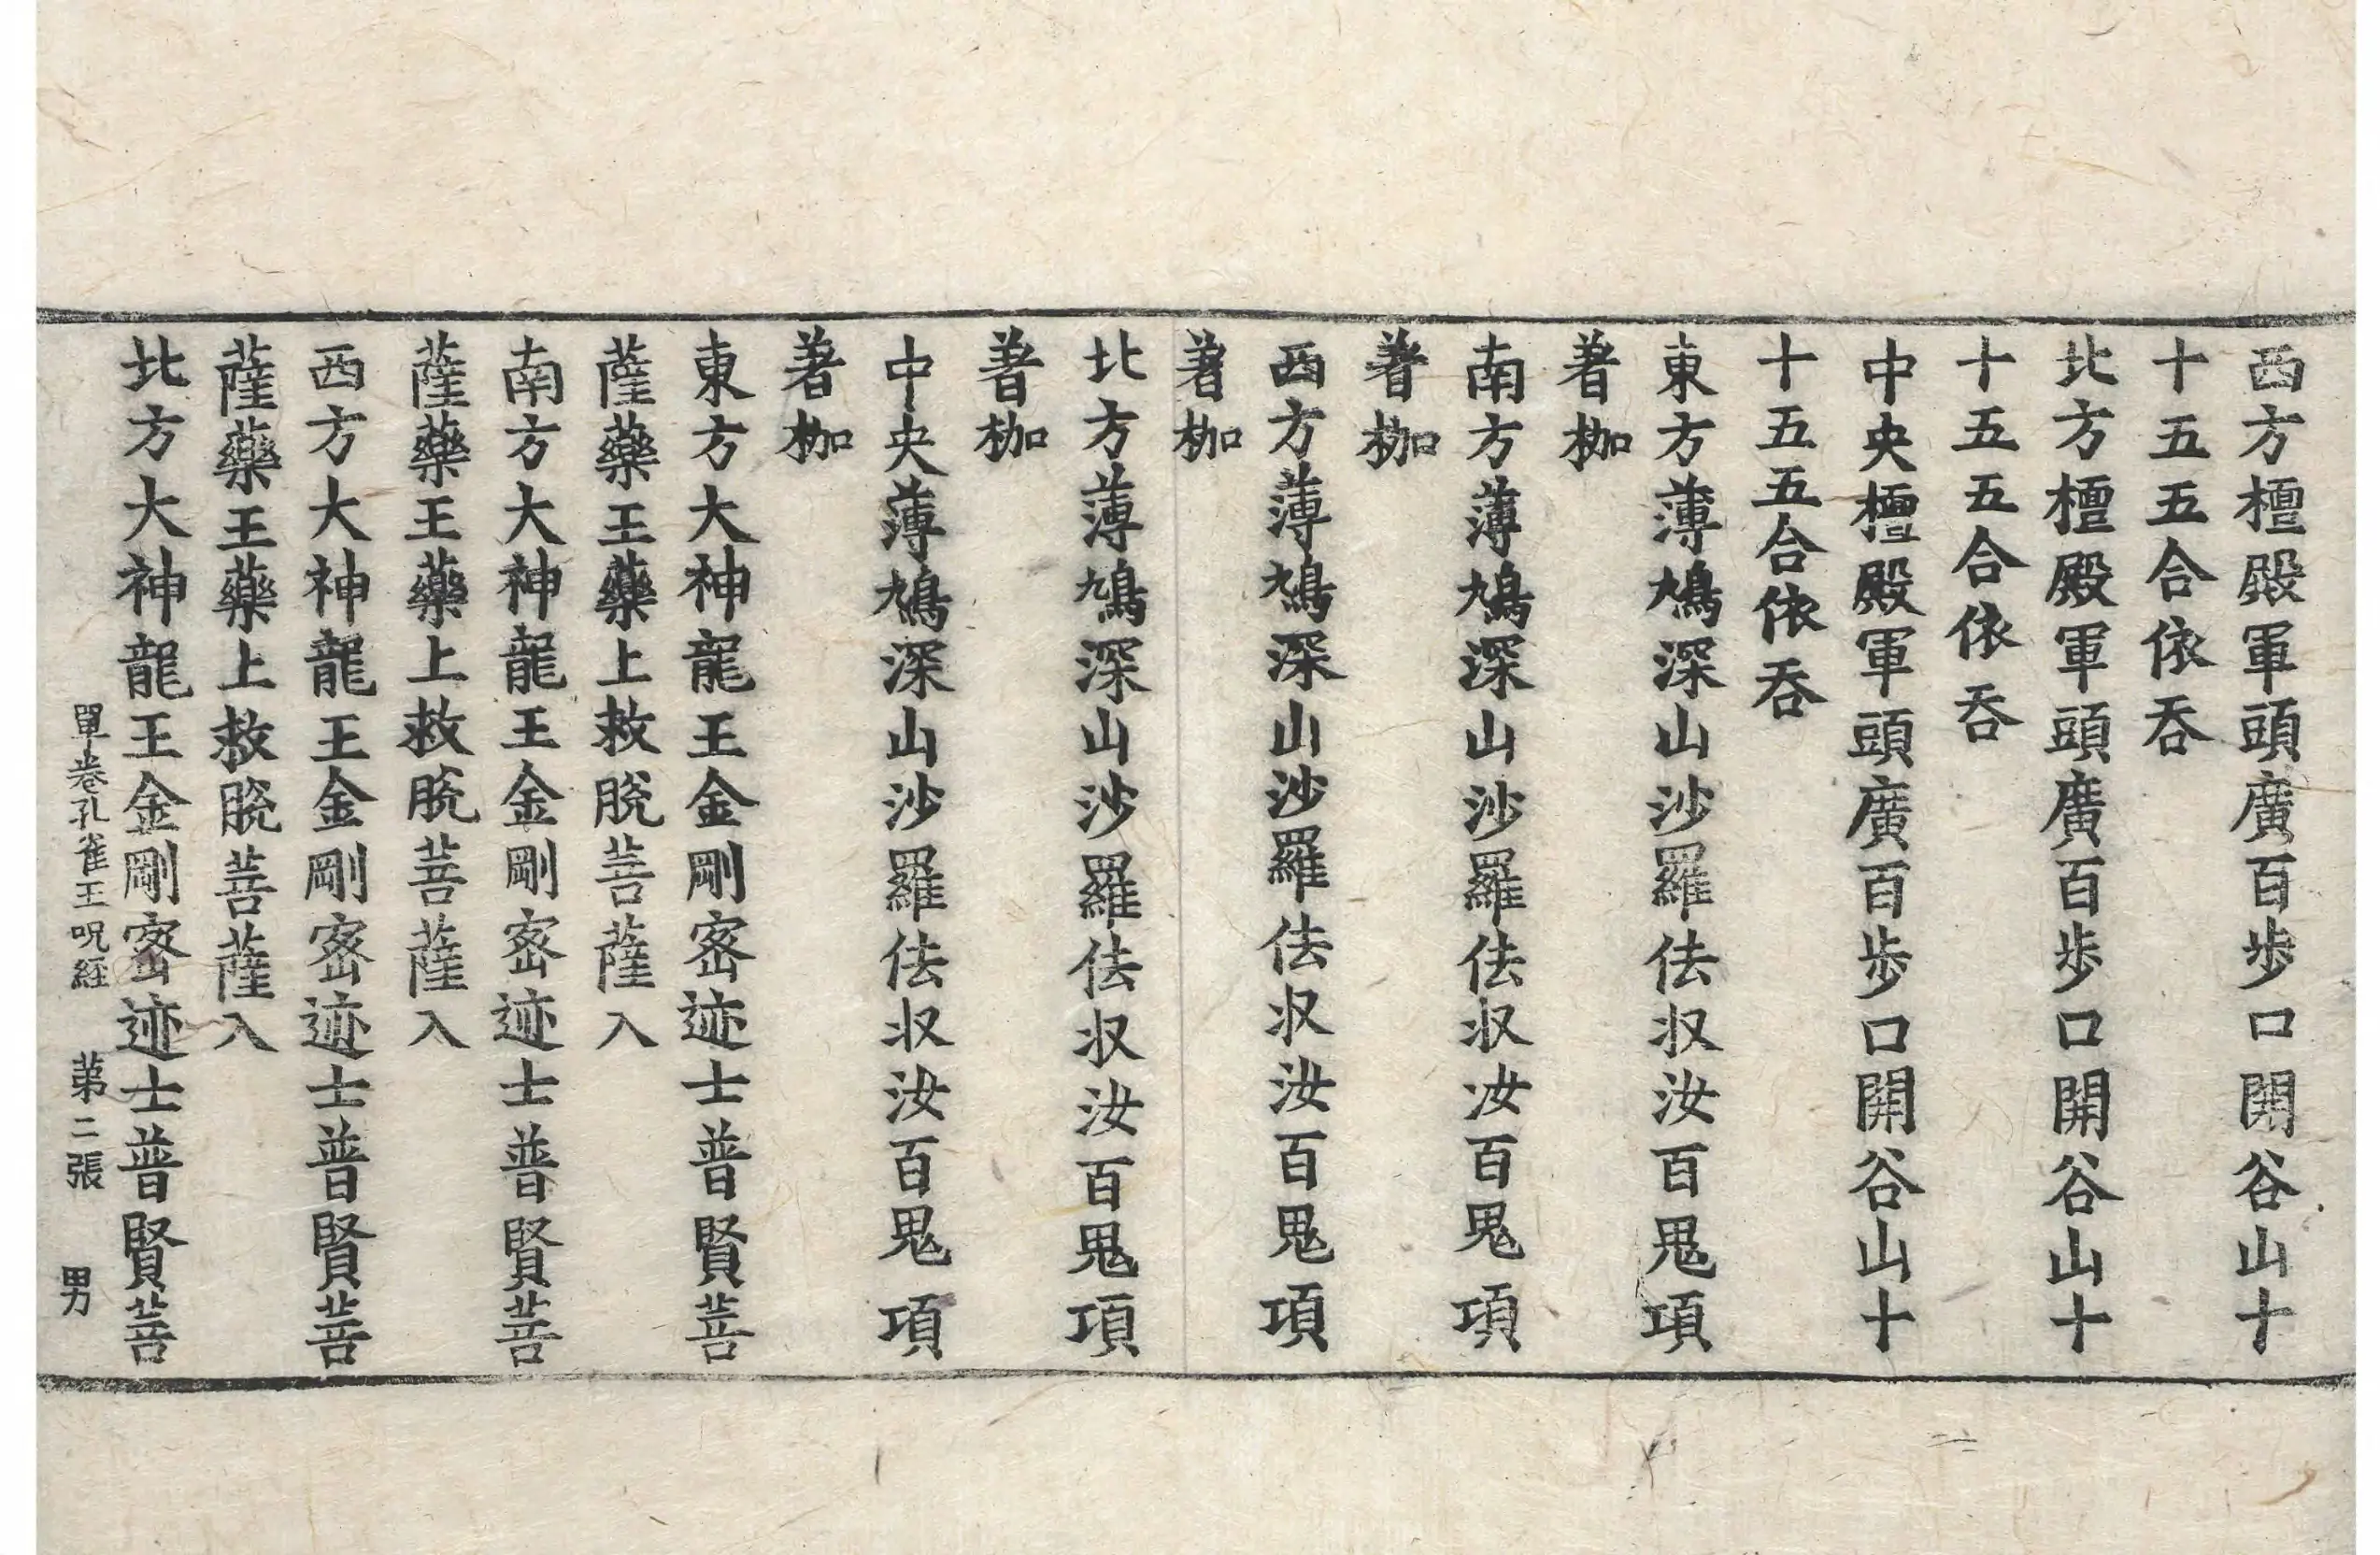 西方檀殿軍頭廣百歩口開谷山十
十五五合依吞
北方檀殿軍頭廣百歩口開谷山十
十五五合依吞
中央檀殿軍頭廣百歩口開谷山十
十五五合依吞
東方薄鳩深山沙羅佉収汝百鬼項
著枷
南方薄鳩深山沙羅佉収汝百鬼項
著枷
西方薄鳩深山沙羅佉収汝百鬼項
著枷
北方薄鳩深山沙羅佉収汝百鬼項
著枷
中央薄鳩深山沙羅佉収汝百鬼項
著枷
東方大神龍王金剛宻迹士普賢菩
薩藥王藥上救脫菩薩入
南方大神龍王金剛宻迹士普賢菩
薩藥王藥上救脫菩薩入
西方大神龍王金剛宻迹士普賢菩
薩藥王藥上救脫菩薩入
北方大神龍王金剛宻迹士普賢菩
單卷孔雀王呪経 苐二張 男